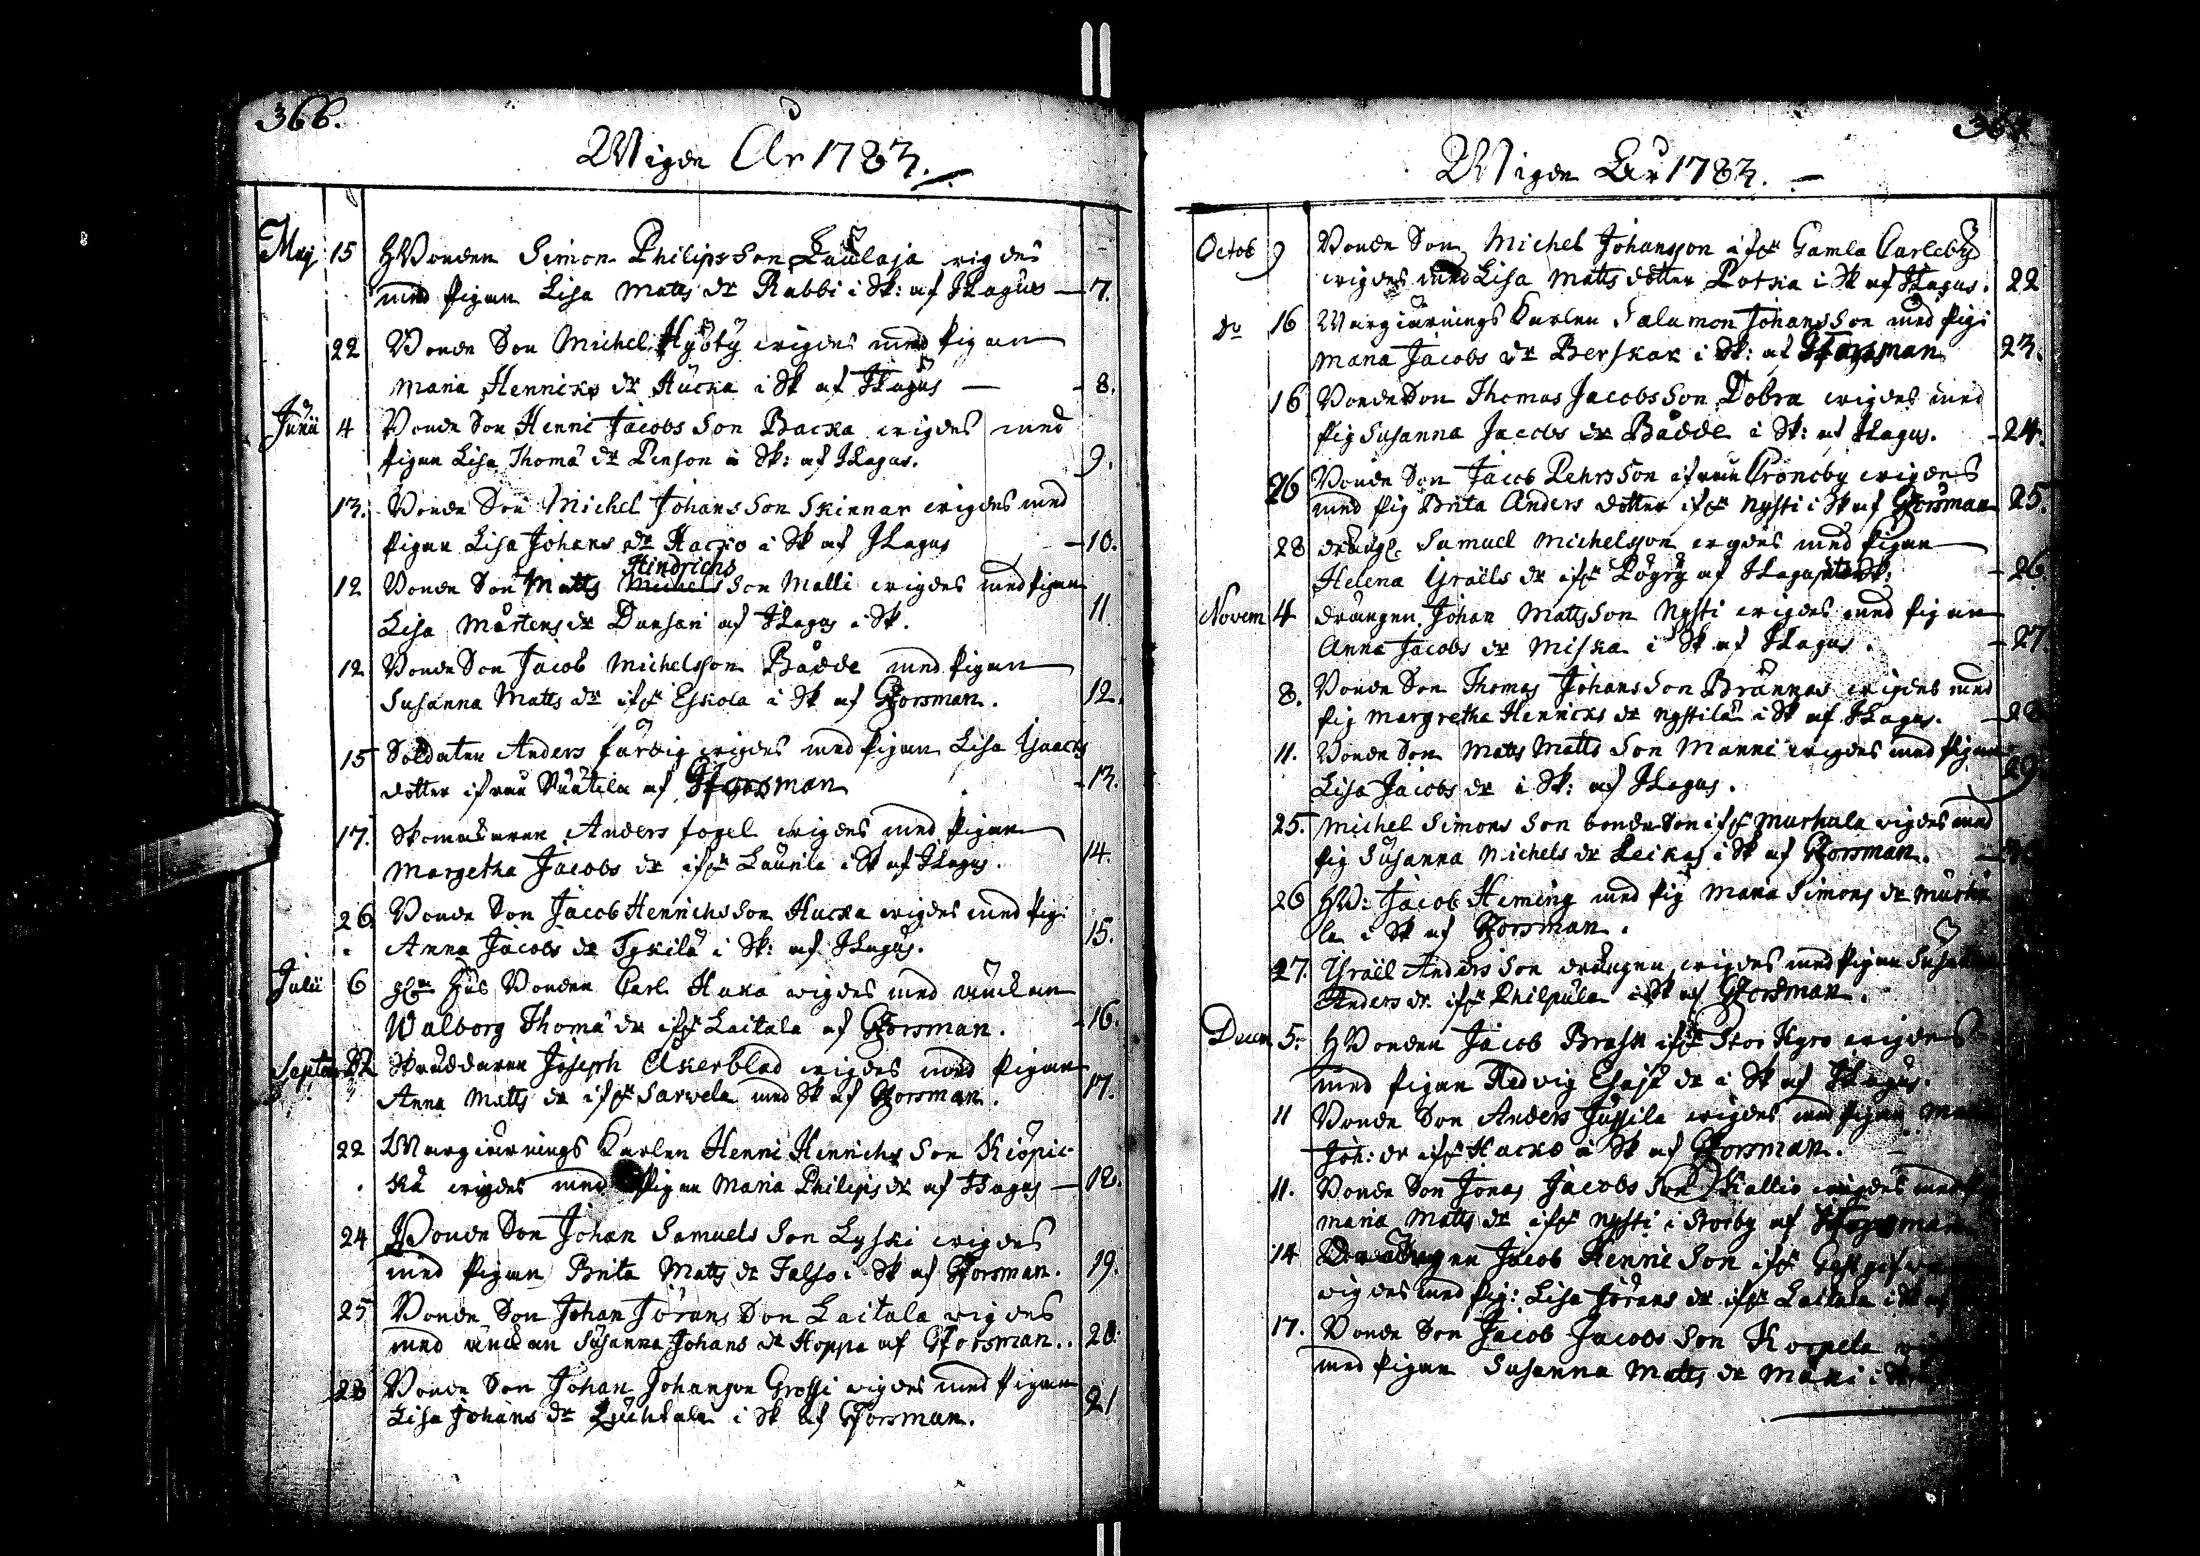 366.
Wigde År 1783.
Maj 15 HBonden Simon Philipsson Laulaja vigdes
med pigan Lisa Matts dr Rabbi i Sk: af JLagus — 7.
22 Bonde Son Michel Hyöty vigdes med pigan
Maria Henricks dr Hucka i Sk af JLagus — 8.
Junii 4 Bonde Son Henric Jacobs Son Backa vigdes med
pigan Lisa Thomæ dr Penson i Sk: af JLagus. 9.
13. Bonde Son Michel Johans Son Skinnar vigdes med
pigan Lisa Johans dr Hacko i Sk af JLagus — 10.
Hindrichs
12 Bonde Son Matts Michels Son Malli vigdes med pigan
Lisa Mårtens dr af JLagus i Sk. 11.
12 Bonde Son Jacob Michelsson Bådde med pigan
Susanna Matts dr ifr Eskola i Sk af GForsman. 12.
15 Soldaten Anders färdig vigdes med pigan Lisa Isaacs
dotter ifrån af GForsman — 13.
17. Skomakaren Anders fogel vigdes med pigan
Margetha Jacobs dr ifr Laurila i Sk af JLagus. 14.
26 Bonde Son Jacob Henrichs Son Hucka vigdes med pig:
Anna Jacobs dr Tykilä i Sk: af JLagus. 15.
Julii 6 Bonden Carl Huka vigdes med änckan
Walborg Thomæ dr ifr Laitala af GForsman. — 16.
Septem 22 Skräddaren Joseph Åkerblad vigdes med pigan
Anna Matts dr ifr Sarvela med Sk af GForsman. 17.
22 Wargierings Karlen Henric Henrichs Son Kiöpic-
kä vigdes med pigan Maria Philips dr af JLagus — 18.
24 Bonde Son Johan Samuels Son Lyski vigdes
med pigan Brita Matts dr Falso i Sk af GForsman. 19.
25 Bonde Son Johan Jörans Son Laitala vigdes
med änckan Susanna Johans dr Hoppa af GForsman. 20.
28 Bonde Son Johan Johanson Grossi vigdes med pigan
Lisa Johans dr Luhtala i Sk af GForsman. 21
367.
Wigde År 1783. —
Octob 9 Bonde Son Michel Johansson ifr Gamla Carleby
vigdes med Lisa Matts dotter Potka i Sk af JLagus. 22
do 16 Wargierings Karlen Salamon Johans Son med pig:
Maria Jacobs dr Berskar i Sk: af GForsman 23.
16 Bonde Son Thomas Jacobs Son Dobra vigdes med
pig Susanna Jacobs dr Bådde i Sk: af JLagus. — 24.
26 Bonde Son Jacob Pehrs Son ifrån Croneby vigdes
med pig Brita Anders dotter ifr Nysti i Sk af GForsman 25.
28 drängen Samuel Michelsson vigdes med pigan
Helena Israëls dr ifr af JLagus — 26.
Novem 4 drängen Johan Matts Son Nysti vigdes med pigan
Anna Jacobs dr Miska i Sk af JLagus. — 27.
8. Bonde Son Thomas Johans Son Brännas vigdes med
pig Margretha Henricks dr Nystilä i Sk af JLagus. — 28
11. Bonde Son Mats Matts Son Manni vigdes med pigan
Lisa Jacobs dr i Sk: af JLagus. 29
25. Michel Simons Son bonde Son ifr Murhula vigdes med
pig Susanna Michels dr Leikas i Sk af GForsman.
26 HB: Jacob Heming med pig Maria Simons dr Murhu
la i Sk af GForsman.
27. Israël Anders Son drängen vigdes med pigan
Anders dr ifr Philpula i Sk af GForsman.
Decem 5. HBonden Jacob Brask ifr Stor Kyro vigdes
med pigan Hedvig Esaiæ dr i Sk af JLagus.
11 Bonde Son Anders Jussila vigdes med pigan
Joh: dr ifr Hacko i Sk af GForsman.
11. Bonde Son Jonas Jacobs Son Kallio vigdes med
Maria Matts dr ifr Nysti i Storby af
14 Drängen Jacob Henric Son ifr
vigdes med pig: Lisa Jörans dr ifr Laitala i Sk af
17. Bonde Son Jacob Jacobs Son Korpela
med pigan Susanna Matts dr Maki i Sk